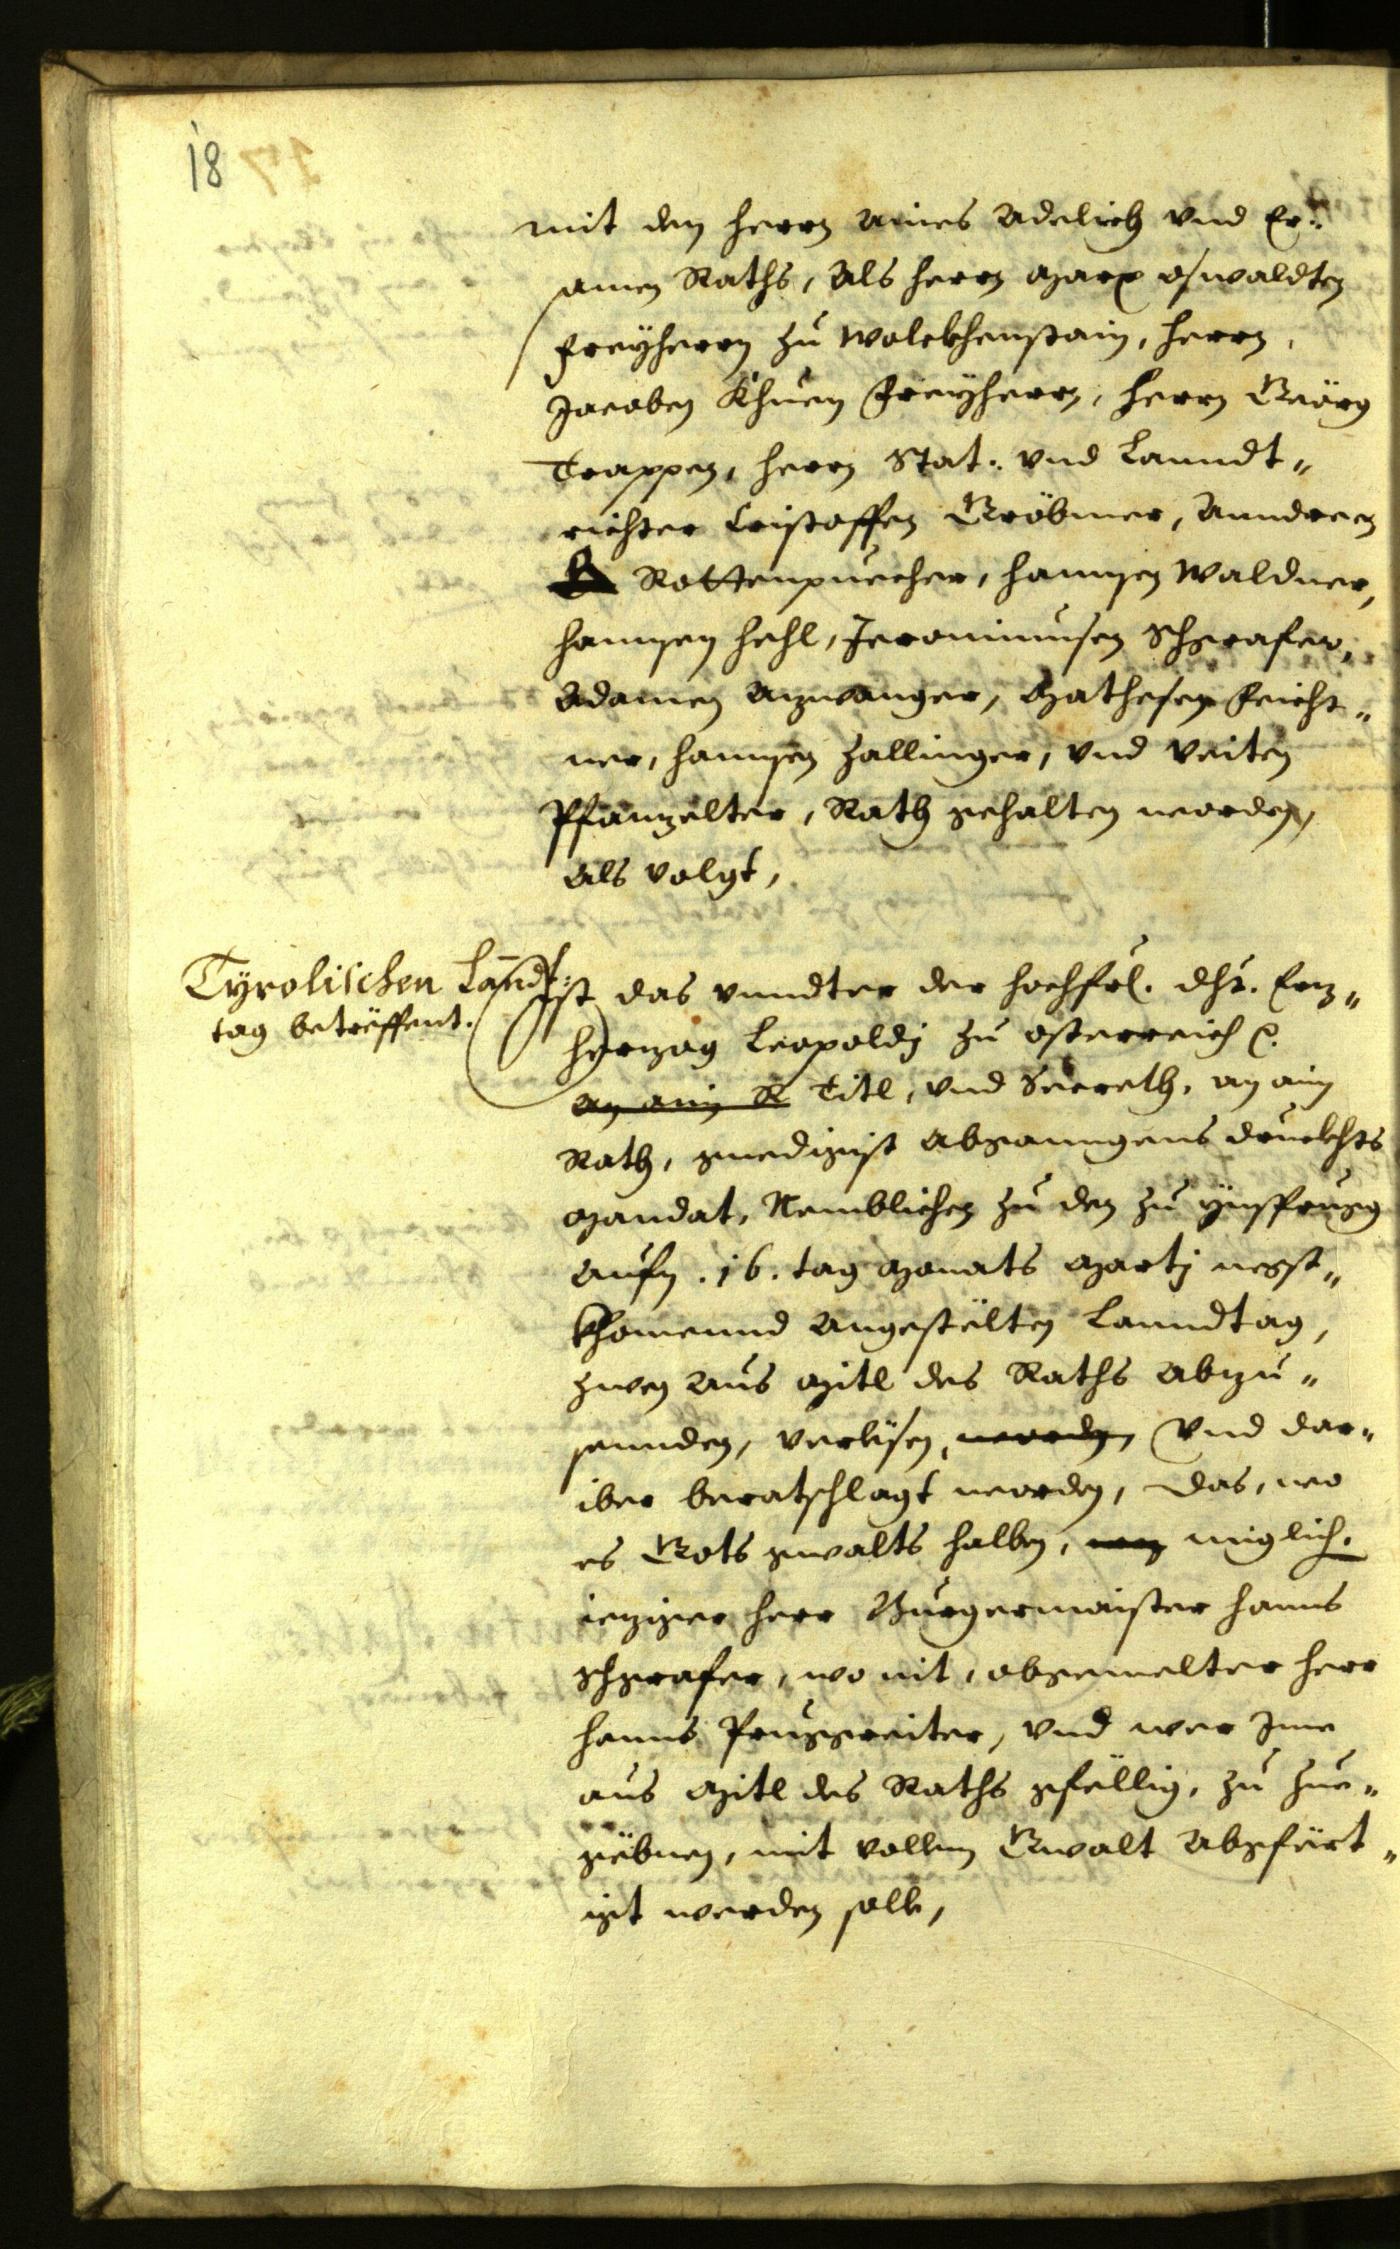 18
mit den herrn aines Adelich vnd Er:
samen Raths, Als herrn Marx Oswaldten
Freyherrn zu Wolckhenstain, herrn,
Jacoben Khuen Freyherrn, herrn Geörg
Trappen, herrn Stat: vnd Lanndt„
richter Cristoffen Gröbmer, Anndreen
Rottenpuecher, hannsen Waldner,
hannsen hehl, Jeronimusen Schgrafer,
Adamen Azwanger, Mathesen Feicht„
ner, hannsen Zallinger, vnd Veiten
Pfanzelter, Rath gehalten worden,
als volgt,
Tyrolischen Landt:
tag betreffent.
Ist das vnndter der hochfrl. dht. Erz„
herzog Leopoldj zu Osterreich &.
an ain R Titl, vnd Secreth, an ain
Rath, gnedigist abganngens druckhts
Mandat, Nemblichen zu den zu Ynsprugg
aufn .16. tag Monats Martj negst„
khomennd angestelten Lanndtag,
zwen aus Mitl des Raths abzu„
sennden, verlesen, worden, vnd dar„
iber beratschlagt worden, das, wo
es Gots gwalts halben, miglich,
ieziger herr Burgermaister hanns
Schgrafer, wo nit, obgemelter herr
hanns Pruggreiter, vnd wer Ime
aus Mitl des Raths gfellig, zu zue„
gebnen, mit vollem Gwalt abgfert„
igt werden solle,